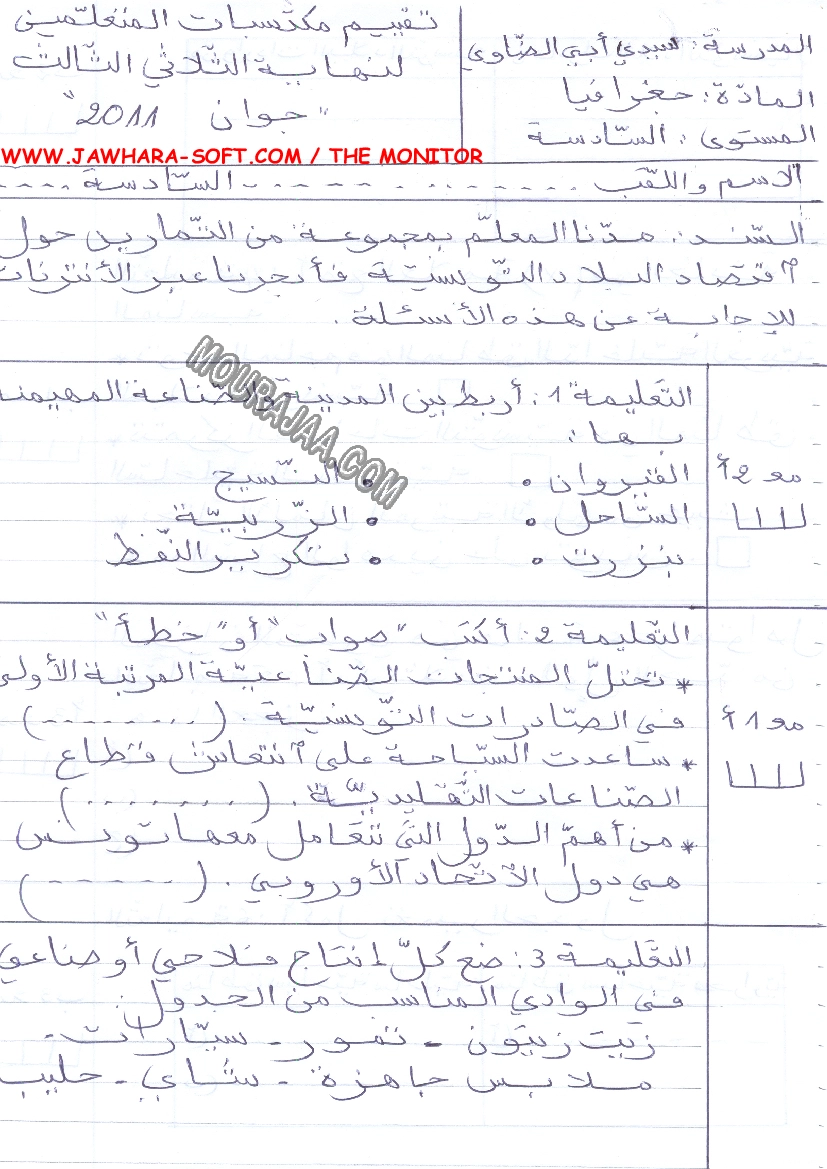 المدرسة: سيدي أبي الضّاوي
المادّة: جغرافيا
المستوى: السّادسة
تقييم مكتسبات المتعلّمين
لنهاية الثّلاثي الثّالث
"جوان 2011"
WWW.JAWHARA-SOFT.COM / THE MONITOR
الاسم واللّقب ............ السّادسة .....
السّند: مدّنا المعلّم بمجموعة من التّمارين حول
اقتصاد البلاد التّونسيّة فأبحرنا عبر الأنترنات
للإجابة عن هذه الأسئلة.
MOURAJAA.COM
التّعليمة 1: أربط بين المدينة والصّناعة المهيمنة
بها:
مع 2أ
القيروان • • النّسيج
السّاحل • • الزّربيّة
بنزرت • • تكرير النّفط
التّعليمة 2: أكتب "صواب" أو "خطأ"
* تحتلّ المنتجات الصّناعيّة المرتبة الأولى
في الصّادرات التّونسيّة. (.........)
مع 1أ
* ساعدت السّياحة على انتعاش قطاع
الصّناعات التّقليديّة. (........)
* من أهمّ الدّول الّتي تتعامل معها تونس
هي دول الاتّحاد الأوروبي. (......)
التّعليمة 3: ضع كلّ إنتاج فلاحي أو صناعي
في الوادي المناسب من الجدول:
زيت زيتون - تمور - سيّارات -
ملابس جاهزة - شاي - حليب